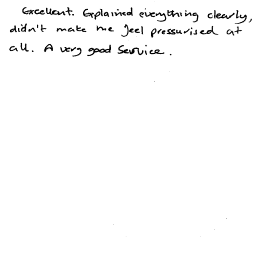 Excellent. Explained everything clearly,
didn't make me feel pressurised at
all. A very good service.